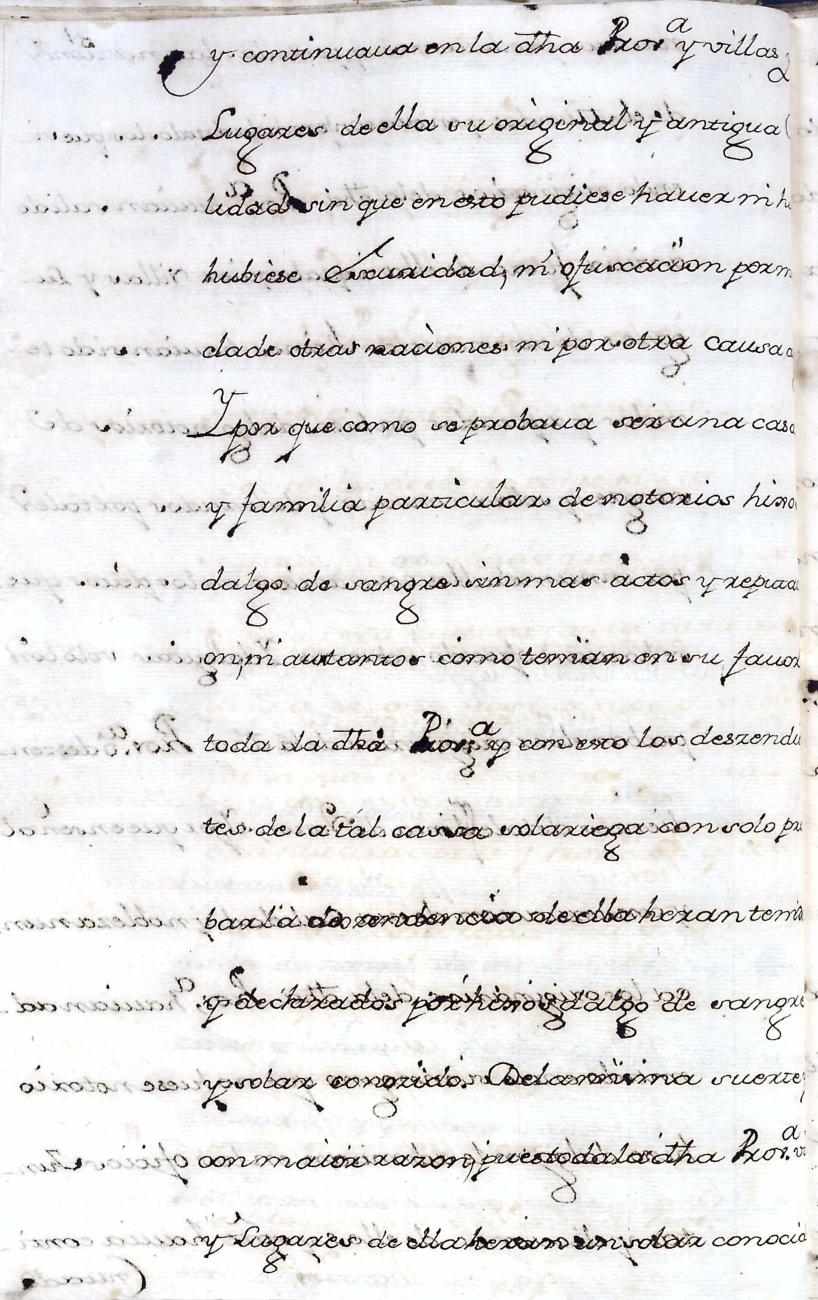 y continuaua en la dha Pros.ª y villas y
Lugares de ella su original y antigua
lidad sin que en esto pudiese hauer ni h
hubiese Escuridad, ni ofuscacion por m
clade otras naciones ni por otra causa
Y por que como se probaua ser una casa
y familia particular de notorios hixos
dalgo de sangre sin mas actos y reputa
on, ni autantos como tenian en su fauor
toda la dha Pros.ª y con esto los deszendie
tes de la tal cassa solariega con solo pr
bar la deszendencia de ella heran tenid
y declarados por hixos dalgo de sangre
y solar conozido. De la misma suerte y
con maior razon, pues toda la dha Pros.ª vi
y Lugares de ella heran un solar conocid